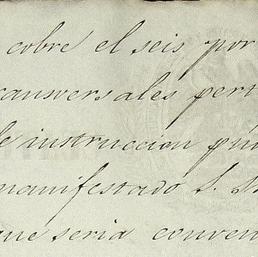 cobre el seis por
answersales per
de instruccion pú
manifestado S.
que seria conven